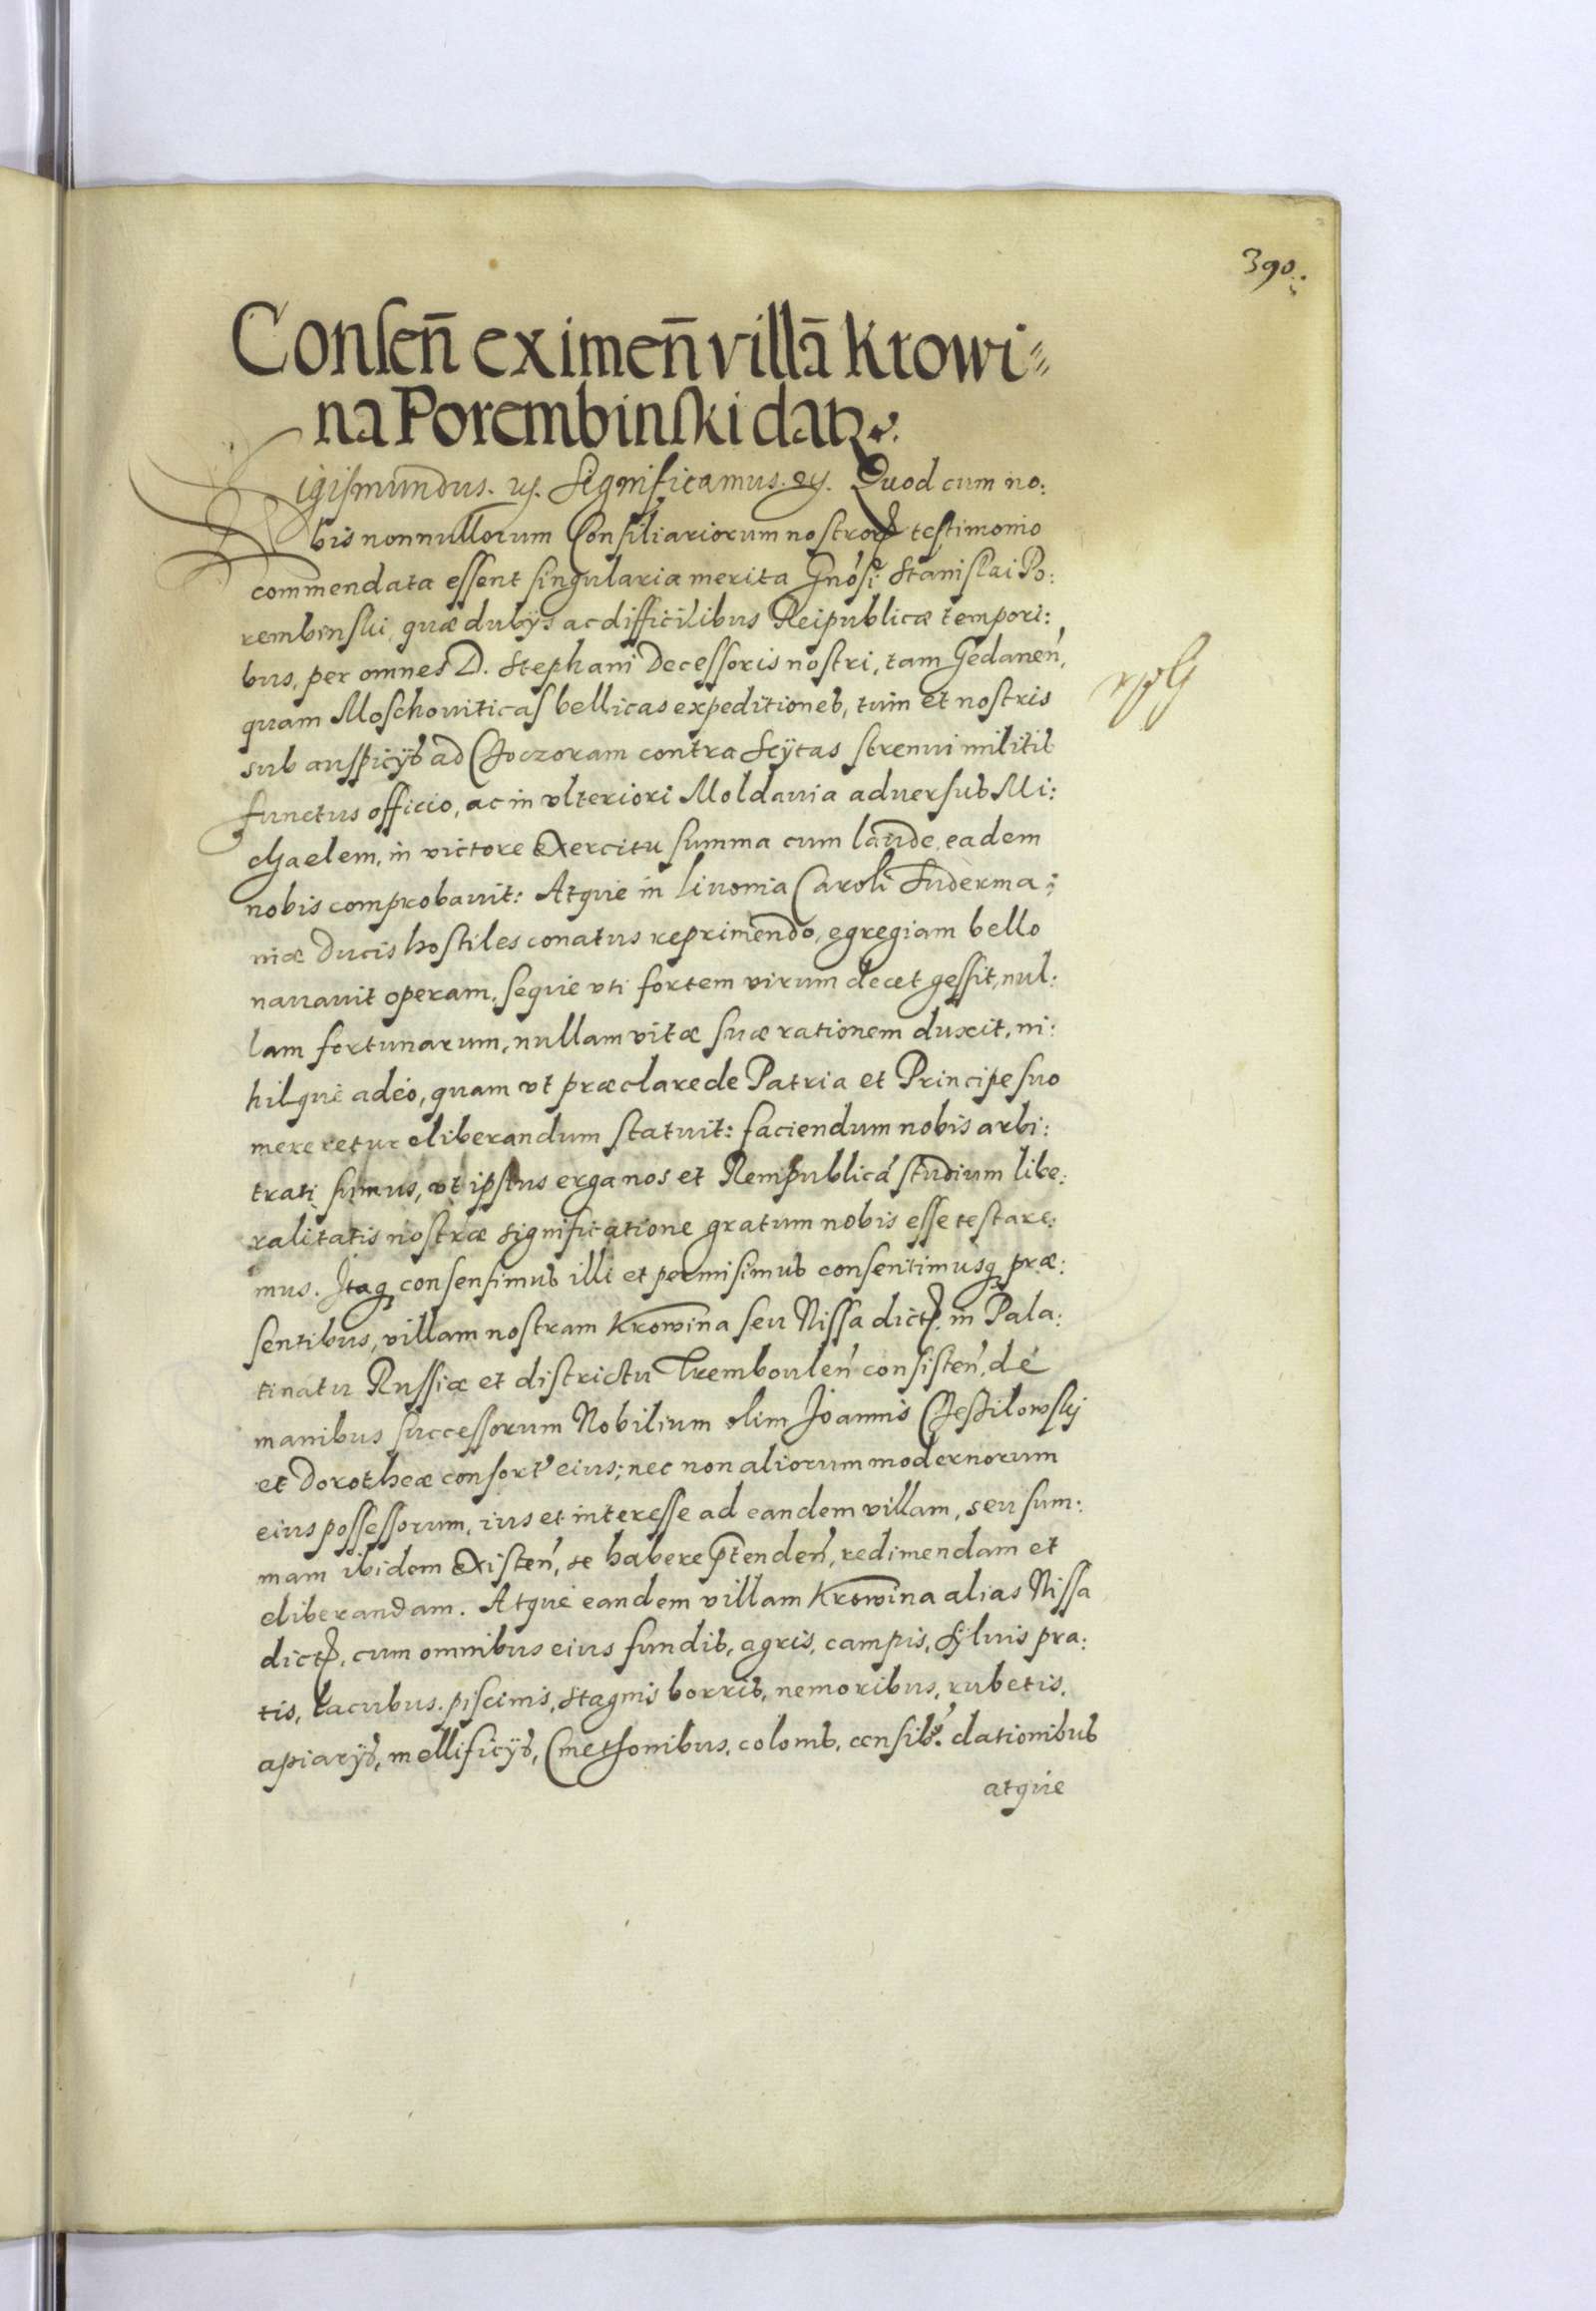 390.
Consen̄ eximen̄ villā Krowi=
na Porembinski datr.
Sigismundus. etc. Significamus. etc. Quod cum no:
bis nonnullorum Consiliariorum nostror̄ testimonio
commendata essent singularia merita Gnosi Stanislai Po:
rembinski, quæ dubijs ac difficilibus Reipublicæ tempori:
bus, per omnes D. Stephani Decessoris nostri, tam Gedanen̄,
quam Moschouiticas bellicas expeditiones, tum et nostris
sub auspicijs ad Choczoram contra Scÿtas strenui militis
functus officio, ac in vlteriori Moldauia aduersus Mi:
chaelem, in victore Exercitu summa cum laude, eadem
nobis comprobauit: Atque in Liuonia Caroli Suderma:
niæ Ducis hostiles conatus reprimendo, egregiam bello
nauauit operam, seque vti fortem virum decet gessit, nul:
lam fortunarum, nullam vitæ suæ rationem duxit, ni:
hilque adeo, quam vt præclare de Patria et Principe suo
mereretur eliberandum statuit: faciendum nobis arbi:
trati sumus, vt ipsius erga nos et Rempublicā studium libe:
ralitatis nostræ significatione gratum nobis esse testare:
mus. Itaq consensimus illi et permisimus consentimusq præ:
sentibus, villam nostram Krowina seu Nissa dict. in Pala:
tinatu Russiæ et districtu Tremboulen̄ consisten̄, de
manibus successorum Nobilium olim Joannis Chestilowskj
et Dorotheæ consort eius; nec non aliorum modernorum
eius possessorum, ius et interesse ad eandem villam, seu sum:
mam ibidem Existen̄, se habere p̄tenden̄, redimendam et
eliberandam. Atque eandem villam Krowina alias Nissa
dict, cum omnibus eius fundis, agris, campis, sÿluis pra:
tis, lacubus. piscinis, stagnis borris, nemoribus, rubetis,
apiarÿs, mellificÿs, Cmethonibus, colonis, censibs. dationibus
atque